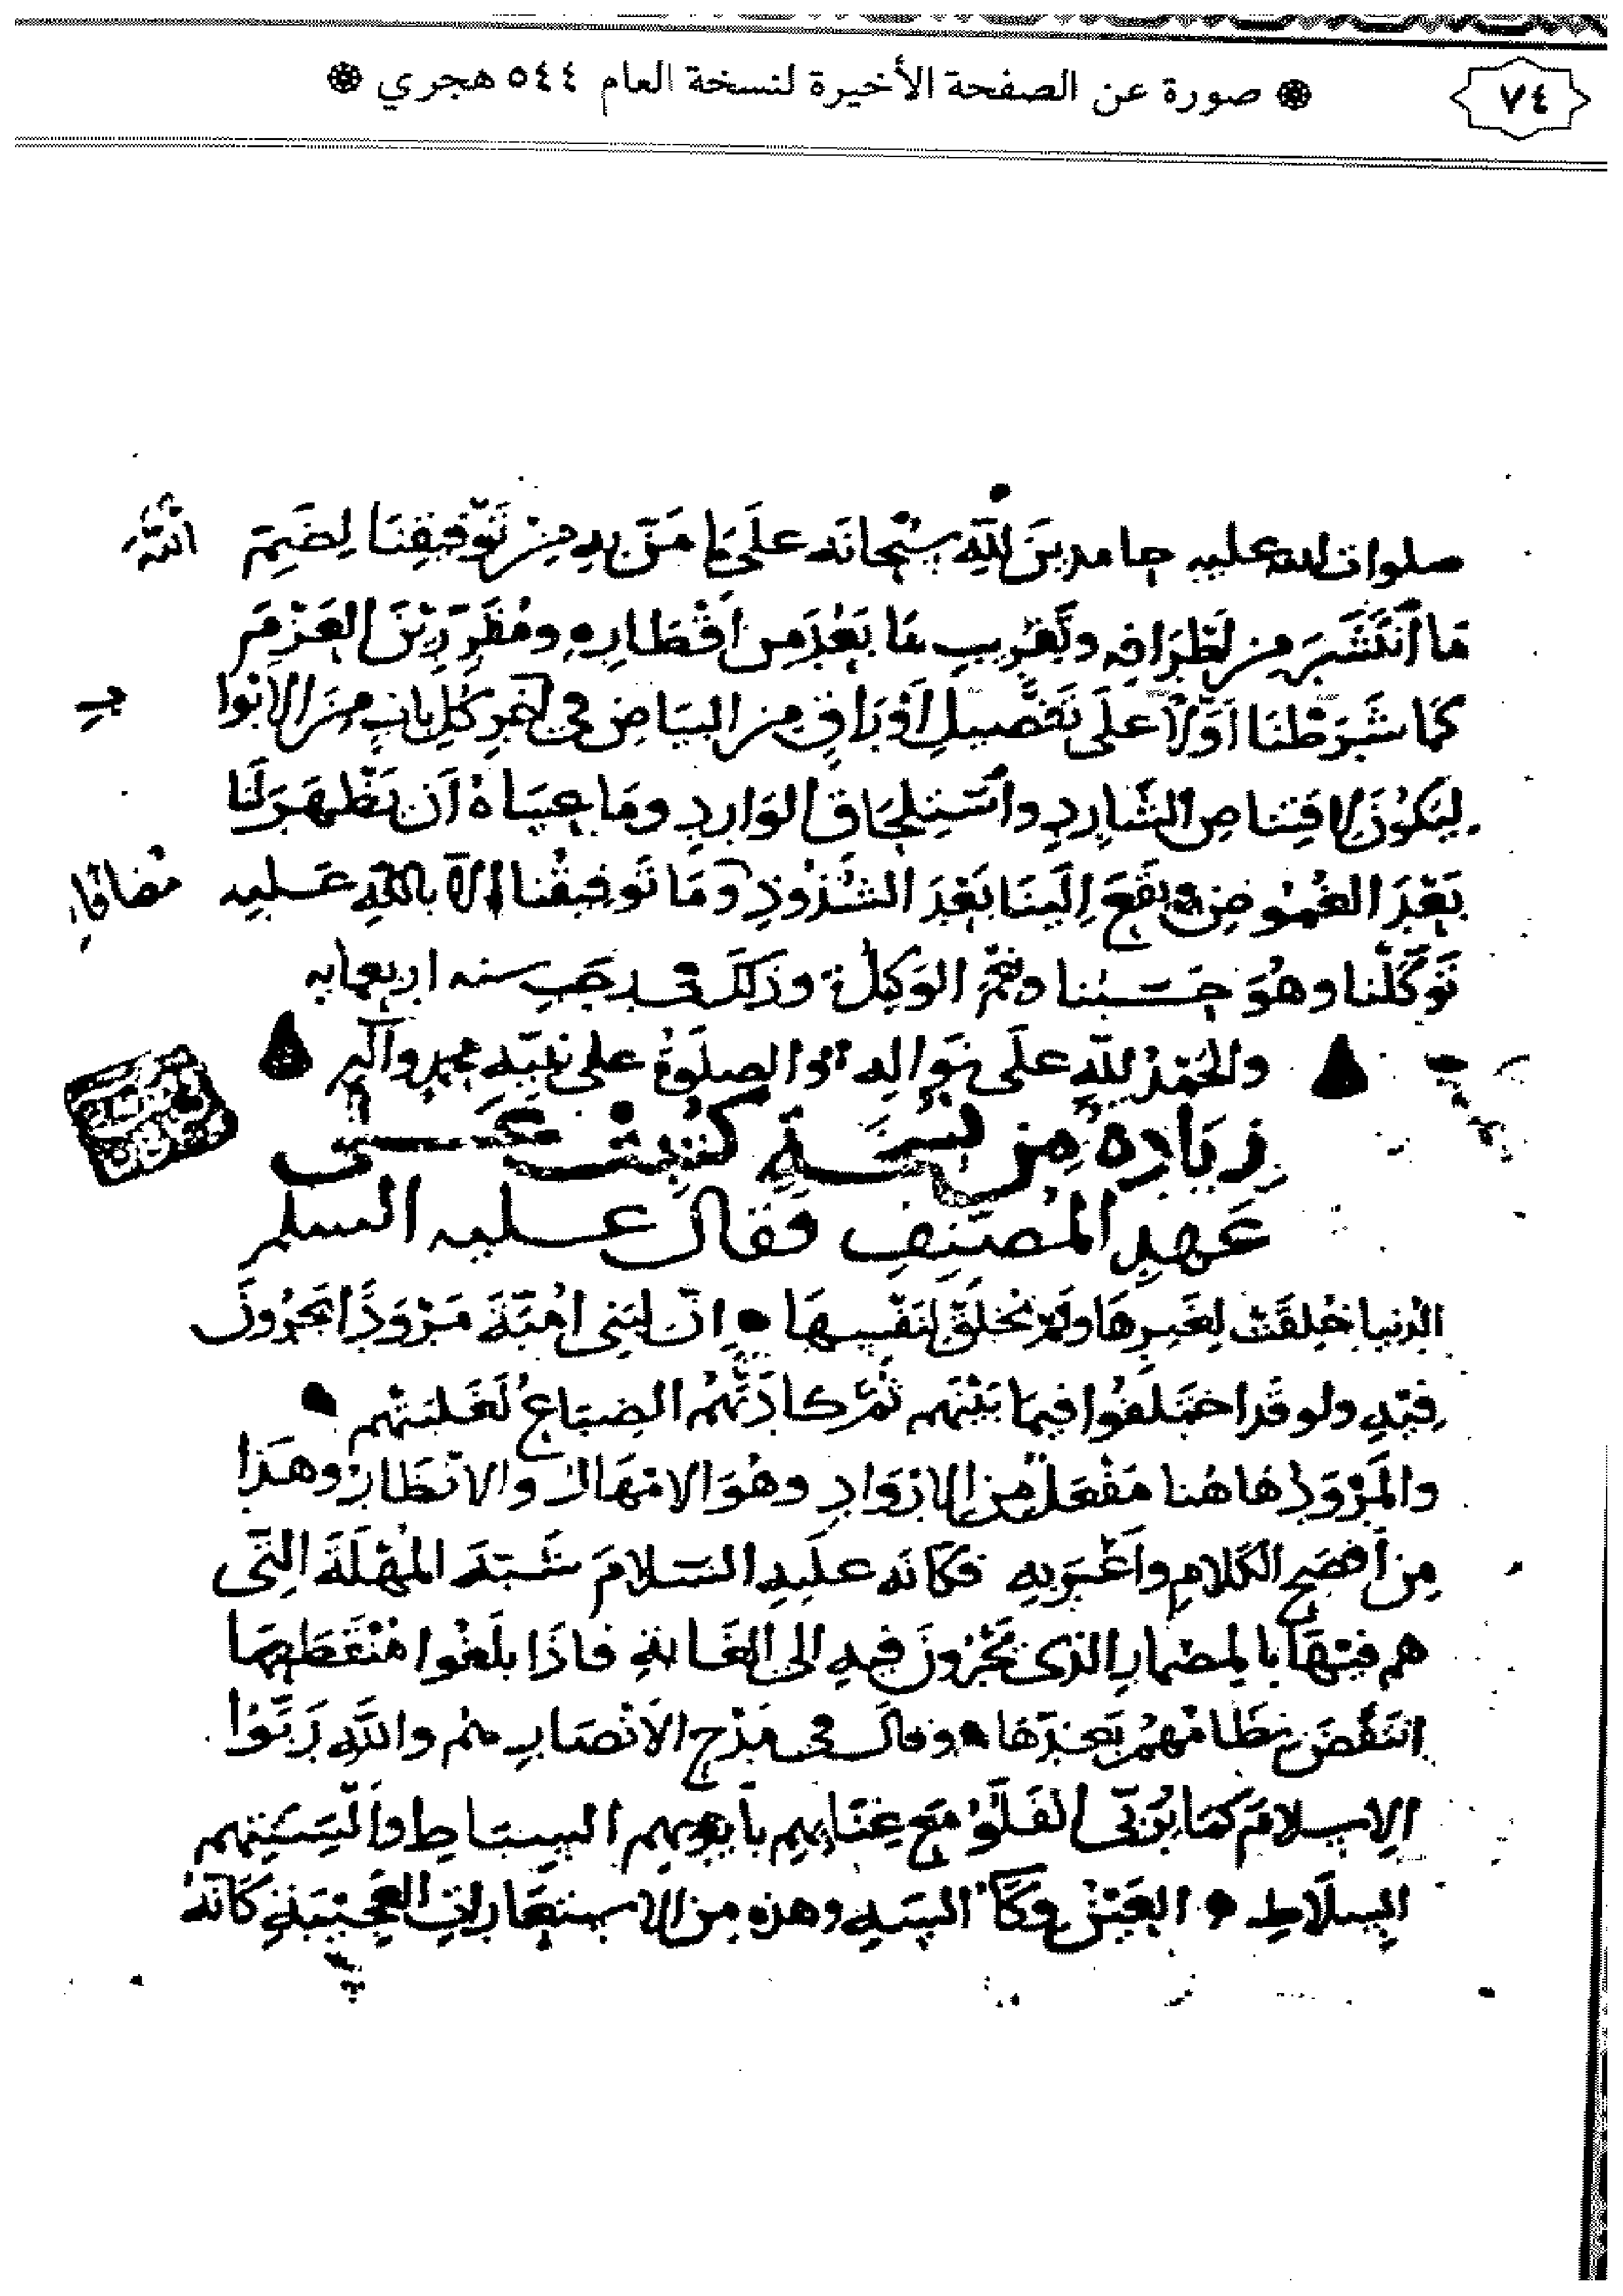 ٧٤
❋ صورة عن الصفحة الأخيرة لنسخة العام ٥٤٤ هجري ❋
صلوات الله عليه حامدين لله سُبْحانَه علَى مَا مَنَّ بِهِ مِن تَوْفِيقِنَا لِضَمِّ
مَا انْتَشَرَ مِن أطْرَافِه وتَقْرِيبِ مَا بَعُدَ مِن اَقْطَارِهِ ومُقَرِّرِيْنَ العَزْمَ
كَمَا شَرَطْنَا اَوّلاً علَى تَفْضِيلِ اَوْرَاقٍ مِن البَيَاضِ فِي آخِرِ كُلِّ بابٍ مِنَ الابْوا
لِيَكُوْنَ لاقتِناصِ الشَّارِدِ واسْتِلْحَاقِ الوَارِدِ ومَا عسَاهُ اَن يَظْهَرَ لَنَا
بَعْدَ الغُمُوضِ ويَقَعَ اِلَيْنَا بَعْدَ الشُذُوذِ ومَا تَوفِيقُنا اِلاّ باللهِ عَليه
تَوَكَّلْنا وهُوَ حَسْبُنا ونِعْمَ الوَكِيلُ وذَلِكَ فى رجَب سنه اربعمايه
والحَمْدُ للهِ علَى نوَالِه والصلَوةُ على نبيّهِ محمدٍ وآلِهِ
زِيَادةٌ مِن نُسْخَةٍ كُتِبَتْ عَلى
عَهدِ المُصَنِّفِ فَقَالَ عليه السلم
الدنيا خُلِقَتْ لِغَيرِهَا ولَمْ تُخْلَقْ لِنَفْسِهَا • اِنّ لِبَنِى اُمَيَّةَ مَرْوَدًا يَجْرُونَ
فِيْهِ ولو قَد اختَلَفُوا فيما بَيْنَهم ثُمّ كادَتْهُمُ الضِبَاعُ لَغَلَبَتْهم •
والمَرْوَدُ هَاهُنا مَفْعَلٌ مِن الارْوَادِ وهُوَ الامْهَالُ والانْظَارُ وهَذا
مِن اَفصَحِ الكَلامِ واَغْرَبِهِ فَكَانَه عليهِ السّلامُ شَبَّهَ المُهْلَةَ الّتى
هم فيْهَا بالمِضْمارِ الذى يَجْرُونَ فِيهِ الى الغَايَةِ فاذَا بلَغُوا مُنْقَطَعَهَا
انتَقَضَ نِظَامُهُمْ بَعْدَهَا • وقالَ فى مَدْحِ الاَنْصَارِ هُم واللهِ رَبَّوُا
الاِسلامَ كَمَا يُرَبَّى الفَلُوُّ مَعَ غَنَائِهِم باَيْدِيهِم السِبَاطِ واَلْسِنَتِهم
السِلاطِ • العَيْنُ وِكَاءُ السَهِ وهذه مِن الاستِعَارَاتِ العَجِيْبَةِ كَانّهُ